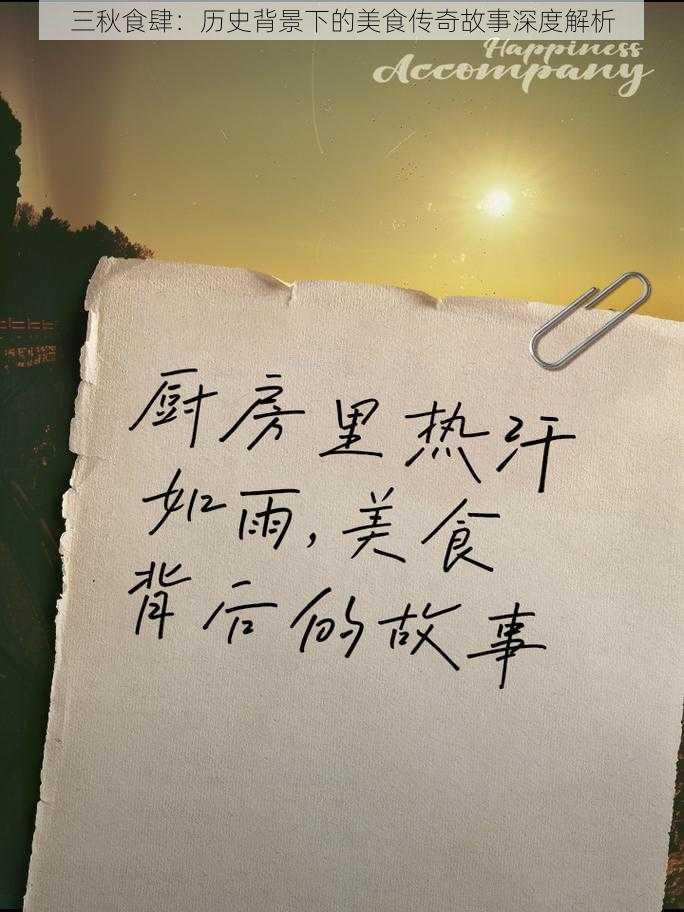 三秋食肆：历史背景下的美食传奇故事深度解析
Happiness
Accompany
厨房里热汗
如雨,美食
背后的故事